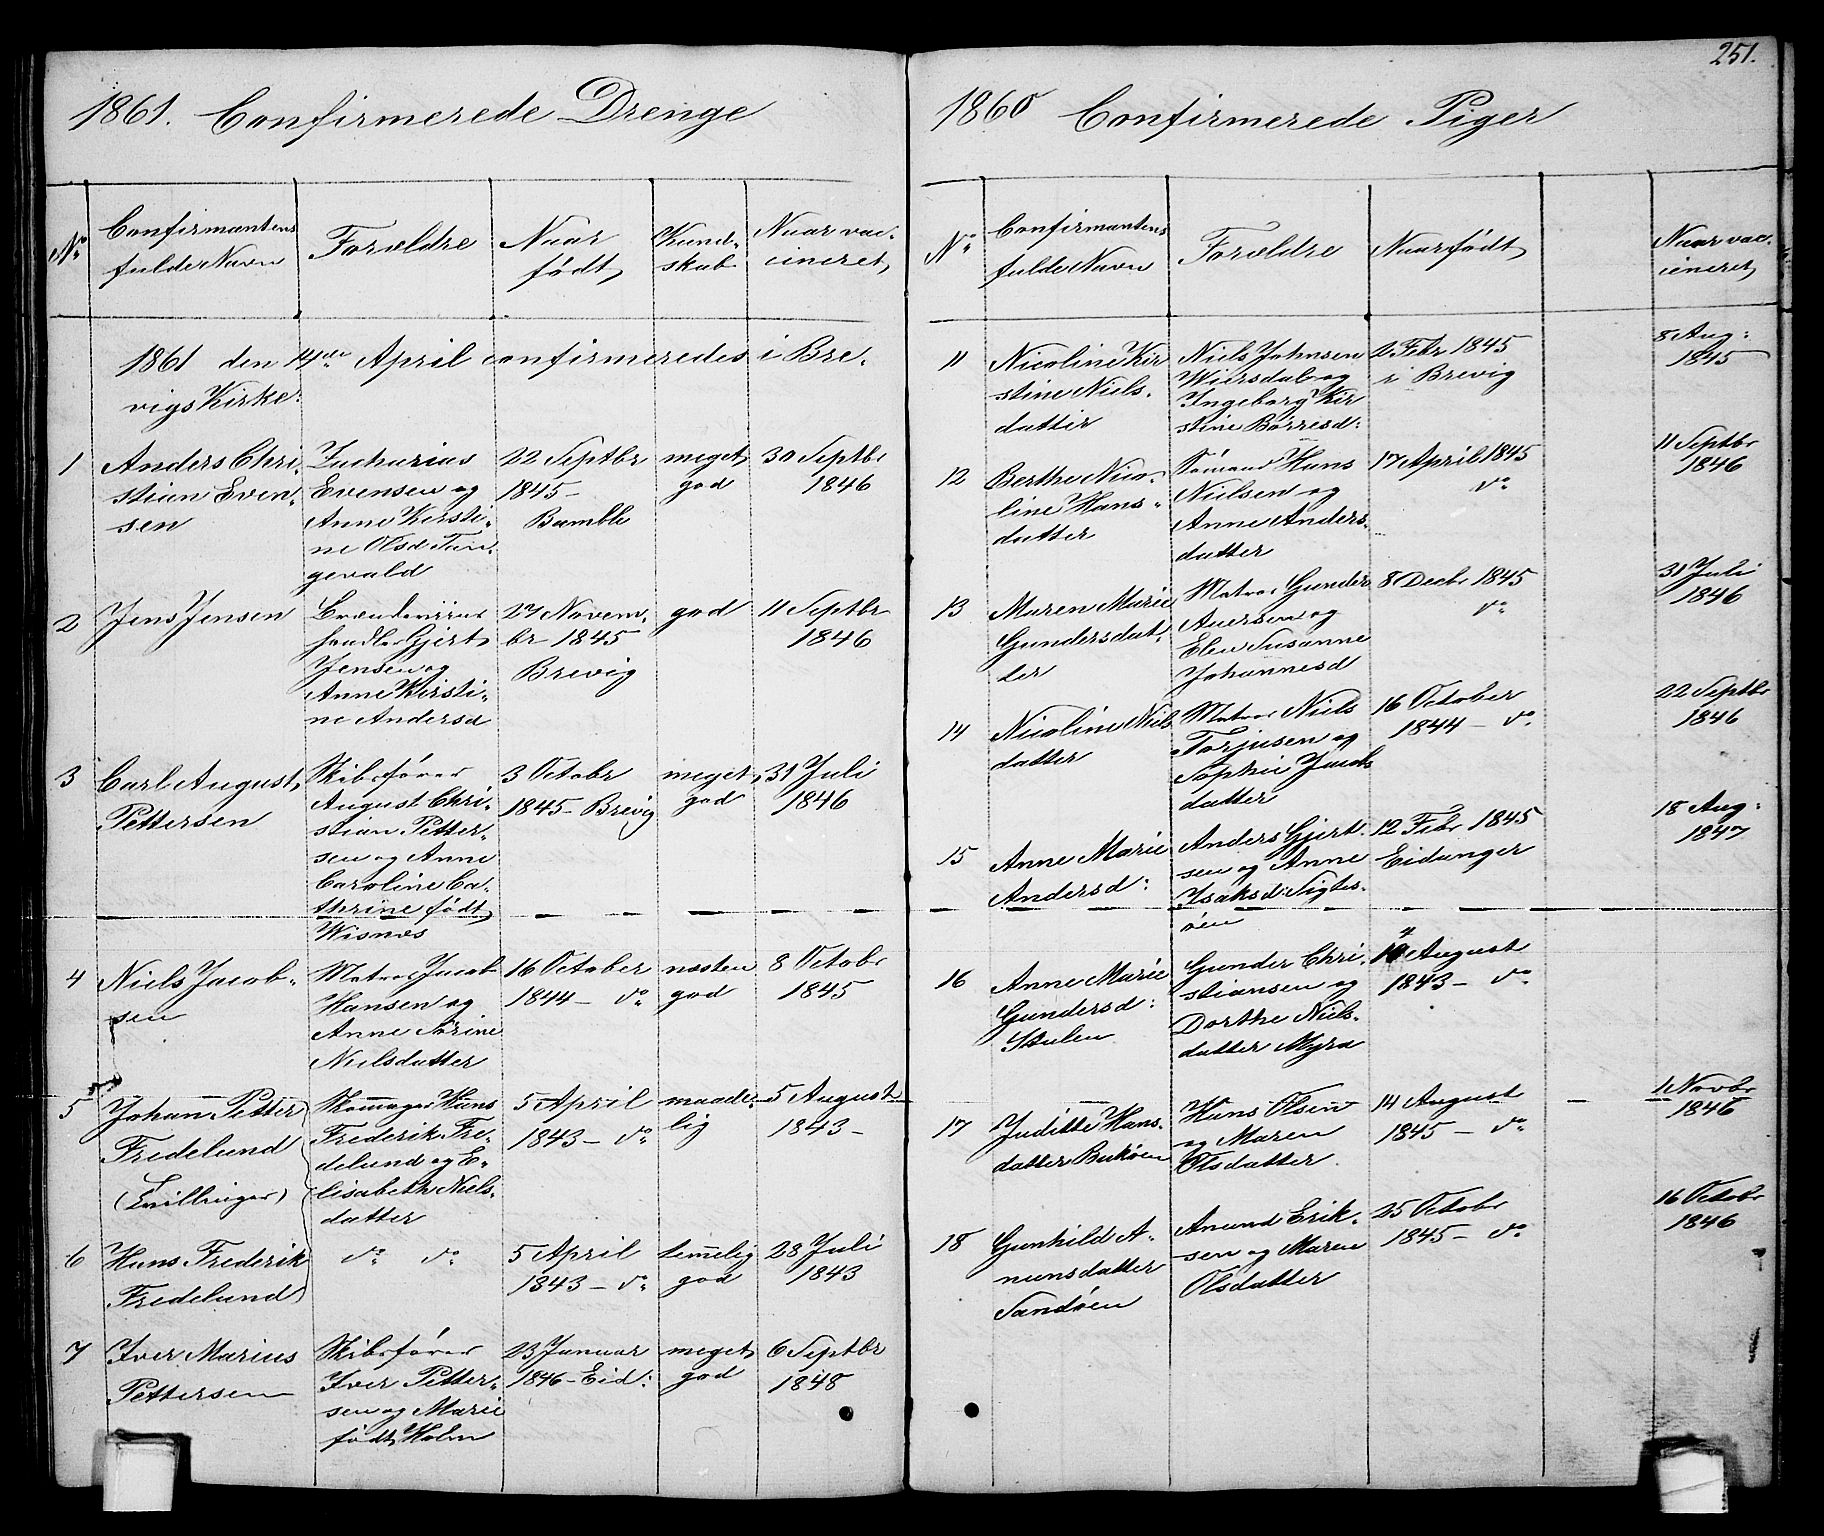 1861. Confirmerede Drenge
No
Confirmantens
fulde Navn
Forældre
Naar
født
Kund-
skab
Naar vac-
cineret
1861 den 14de April confirmeredes i Bre-
vigs Kirke:
1
Anders Chri-
stian Even-
sen
Zacharias
Evensen og
Anne Kirsti-
ne Olsd Tan-
gevald
22 Septbr
1845 -
Bamble
meget
god
30 Septbr
1846
2
Jens Jensen
handler Gjert
Jensen og
Anne Kirsti-
ne Andersd
27 Novem-
br 1845
Brevig
god
11 Septbr
1846
3
Carl August
Pettersen
Skibsfører
August Chri-
stian Petter-
sen og Anne
Caroline Ca-
thrine født
Wisnæs
3 Octobr
1845 - Brevig
meget
god
31 Juli
1846
4
Niels Jacob-
sen
Matros Jacob
Hansen og
Anne Sørine
Nielsdatter
16 October
1844 - do
næsten
god
8 Octobr
1845
5
Johan Petter
Fredelund
(Tvillinger)
Skomager Hans
Frederik Fre-
delund og E-
lisabeth Niels-
datter
5 April
1843 - do
maade-
lig
5 August
1843 -
6
Hans Frederik
Fredelund
do do
5 April
1843 - do
temelig
god
28 Juli
1843
7
Iver Marius
Pettersen
Skibsfører
Iver Petter-
sen og Marie
født Holm
23 Januar
1846 - Eid:
meget
god
6 Septbr
1848
251.
1860 Confirmerede Piger
No
Confirmantens
fulde Navn
Forældre
Naar født
Naar vac-
cineret
11
Nicoline Kir
stine Niels-
datter
Niels Johnsen
Wiersdal og
Ingeborg Kir
stine Børresd:
2 Febr 1845
i Brevig
8 Aug:
1845
12
Berthe Nico-
line Hans-
datter
Sømand Hans
Nielsen og
Anne Anders-
datter
17 April 1845
do
11 Septbr
1846
13
Maren Marie
Gundersdat-
ter
Matros Gunder
Auersen og
Elen Susanne
Johannesd
8 Decbr 1845
do
31 Juli
1846
14
Nicoline Niels
datter
Matros Niels
Torjusen og
Sophie Jacobs
datter
16 October
1844 - do
22 Septbr
1846
15
Anne Marie
Andersd:
Anders Gjert-
sen og Anne
Isaksd: Sigtes-
øen
12 Febr 1845
Eidanger
18 Aug:
1847
16
Anne Marie
Gundersd:
Stulen
Gunder Chri-
stiansen og
Dorthe Niels-
datter Myra
August
1843 - do
17
Juditte Hans-
datter Bukøen
Hans Olsen
og Maren
Olsdatter
14 August
1845 - do
1 Novbr
1846
18
Gunhild A-
nunsdatter
Sandøen
Anund Erik-
sen og Maren
Olsdatter
25 Octobr
1845 - do
16 Octobr
1846